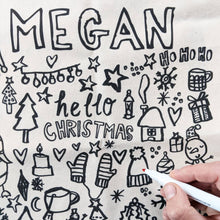 MEGAN
HO HO HO
hello
CHRISTMAS